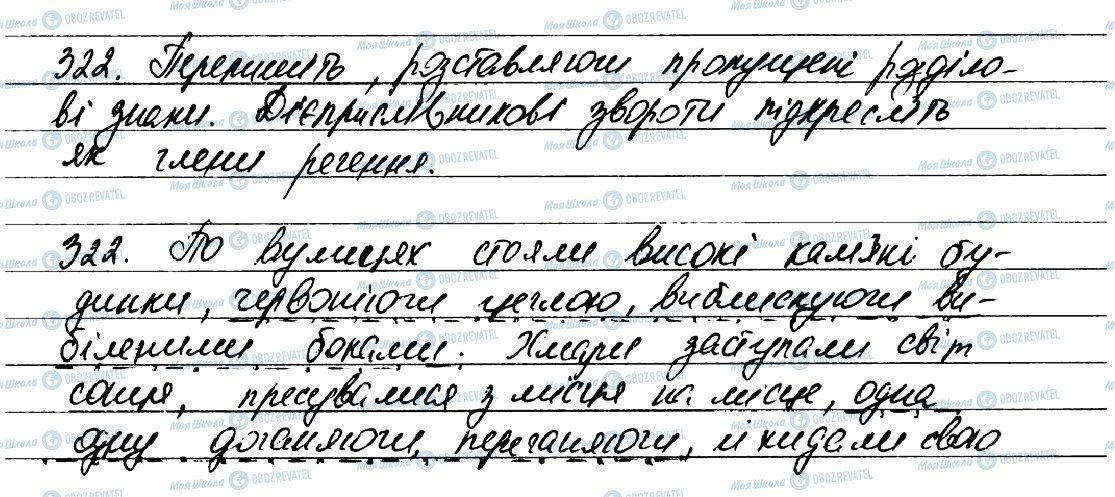 322. Перепишіть, розставляючи пропущені розділо-
ві знаки. Дієприслівникові звороти підкресліть
як члени речення.
322. По вулицях стояли високі кам'яні бу-
динки, червоніючи цеглою, виблискуючи ви-
біленими боками. Хмари заступали світ
сонця, пресувалися з місця на місце, одна
одну доганяючи, переганяючи, й кидали свою